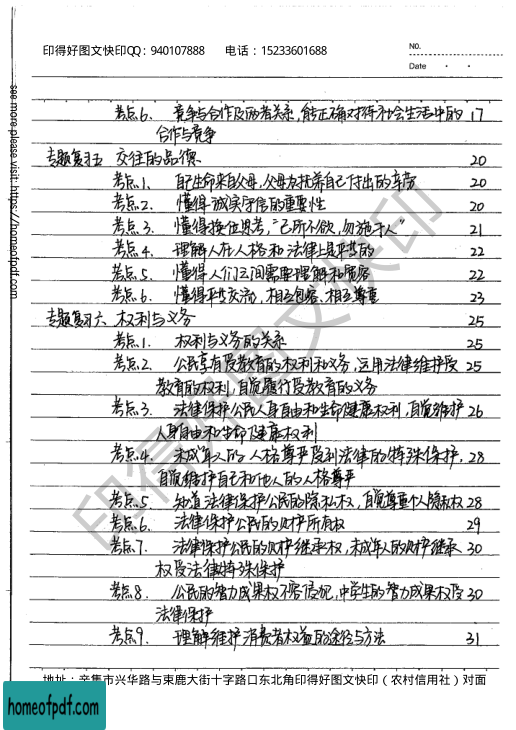 印得好图文快印QQ：940107888 电话：15233601688
NO.
Date
考点6. 竞争与合作及两者关系，能正确对待社会生活中的 17
合作与竞争
专题复习五 交往的品德 20
考点1. 自己生命来自父母，父母为抚养自己付出的辛劳 20
考点2. 懂得诚实守信的重要性 20
考点3. 懂得换位思考，“己所不欲，勿施于人” 21
考点4. 理解人在人格和法律上是平等的 22
考点5. 懂得人们之间需要理解和宽容 22
考点6. 懂得平等交流，相互包容、相互尊重 23
专题复习六 权利与义务 25
考点1. 权利与义务的关系 25
考点2. 公民享有受教育的权利和义务，运用法律维护受 25
教育的权利，自觉履行受教育的义务
考点3. 法律保护公民人身自由和生命健康权利，自觉维护 26
人身自由和生命健康权利
考点4. 未成年人的人格尊严受到法律的特殊保护， 28
自觉维护自己和他人的人格尊严
考点5 知道法律保护公民的隐私权，自觉尊重个人隐私权 28
考点6. 法律保护公民的财产所有权 29
考点7. 法律保护公民的财产继承权，未成年人的财产继承 30
权受法律特殊保护
考点8. 公民的智力成果权不容侵犯，中学生的智力成果权受 30
法律保护
考点9. 理解维护消费者权益的途径与方法 31
地址：辛集市兴华路与束鹿大街十字路口东北角印得好图文快印（农村信用社）对面
see more please visit: https://homeofpdf.com
印得好图文快印
homeofpdf.com